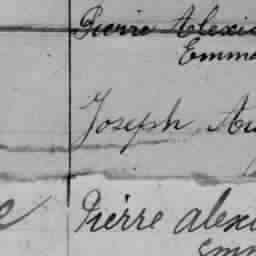 Pierre Alexi
Emma
Joseph Au
Pierre alexi
Emm